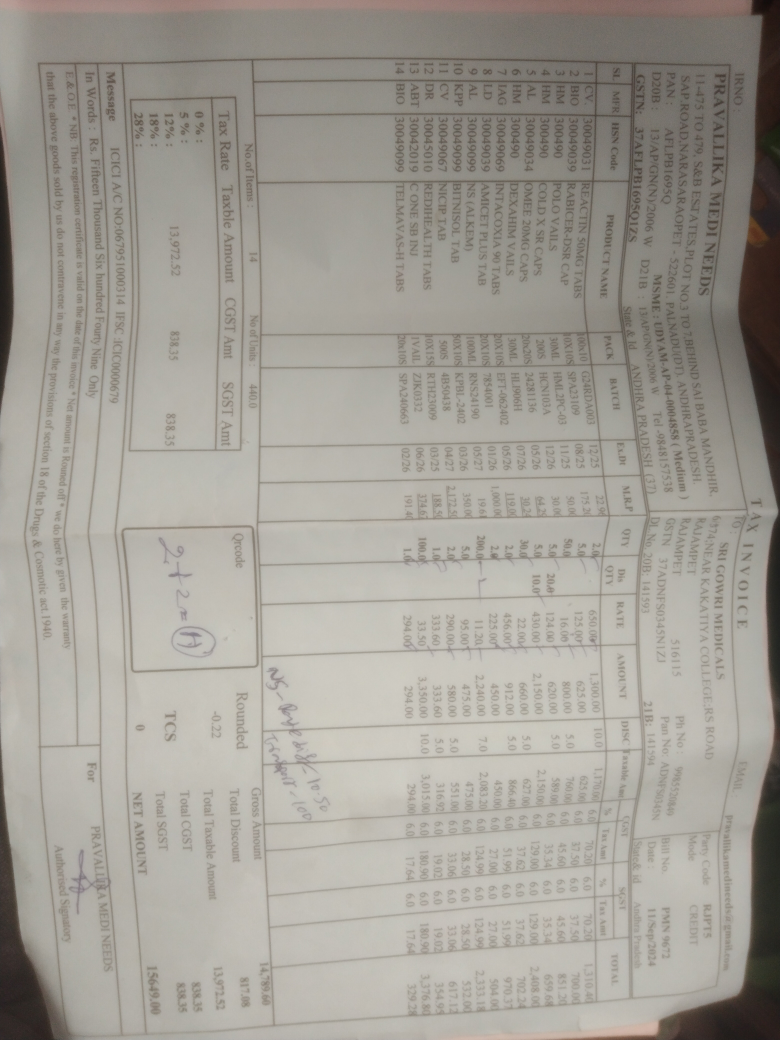 IRNO :
TAX INVOICE
EMAIL pravallikamedineeds@gmail.com
PRAVALLIKA MEDI NEEDS
11-475 TO 479, S&B ESTATES,PLOT NO.3 TO 7,BEHIND SAI BABA MANDHIR,
SAP ROAD,NARASARAOPET - 522601. PALNADU(DT), ANDHRAPRADESH.
PAN : AFLPB1695Q MSME : UDYAM-AP-44-0004858 ( Medium )
D20B : 12/AP/GN(N)/2006 W D21B : 13/AP/GN(N)/2006 W Tel -9848157538
GSTN: 37AFLPB1695Q1ZS State & Id ANDHRA PRADESH (37)
TO :
SRI GOWRI MEDICALS
6/374;NEAR KAKATIYA COLLEGE;RS ROAD
RAJAMPET
RAJAMPET 516115 Ph No : 9985520849
GSTN 37ADNFS0345N1ZJ Pan No: ADNFS0345N
Dl. No. 20B: 141593 21B: 141594
Party Code RJPT5
Mode CREDIT
Bill No. PMN 9672
Date : 11/Sep/2024
State& id Andhra Pradesh
SL MFR HSN Code PRODUCT NAME PACK BATCH Ex.Dt M.R.P QTY Dis QTY RATE AMOUNT DISC Taxable Amt CGST % Tax Amt SGST % Tax Amt TOTAL
1 CV 30049031 REACTIN 50MG TABS 12/25 2.0 650.00 1,300.00 10.0 1,170.00 6.0 70.20 6.0 70.20 1,310.40
2 BIO 30049039 RABICER-DSR CAP 10X10S SPA23109 08/25 175.20 5.0 125.00 625.00 625.00 6.0 37.50 6.0 37.50 700.00
3 HM 300490 POLO VAILS 30ML HML2PC-03 11/25 50.00 50.0 16.00 800.00 5.0 760.00 6.0 45.60 6.0 45.60 851.20
4 HM 300490 COLD X SR CAPS 200S HCN103A 12/26 30.00 5.0 20.0 124.00 620.00 5.0 589.00 6.0 35.34 6.0 35.34 659.68
5 AL 30049034 OMEE 20MG CAPS 20x20S 24281136 05/26 5.0 10.0 430.00 2,150.00 2,150.00 6.0 129.00 6.0 129.00 2,408.00
6 HM 300490 DEXAHIM VAILS 30ML 07/26 30.0 22.00 660.00 5.0 627.00 6.0 37.62 6.0 37.62 702.24
7 IAG 30049069 INTACOXIA 90 TABS 20X10S EFT-062402 05/26 119.00 2.0 456.00 912.00 5.0 866.40 6.0 51.99 6.0 51.99 970.37
8 LD 30049039 AMICET PLUS TAB 20X10S 7854001 01/26 1,000.00 2.0 225.00 450.00 450.00 6.0 27.00 6.0 27.00 504.00
9 AL 30049099 NS (ALKEM) 100ML RNS24190 05/27 200.0 11.20 2,240.00 7.0 2,083.20 6.0 124.99 6.0 124.99 2,333.18
10 KPP 30049099 BITNISOL TAB 50X10S KPBL-2402 03/26 350.00 5.0 95.00 475.00 475.00 6.0 28.50 6.0 28.50 532.00
11 CV 30049067 NICIP TAB 500S 4B50438 04/27 2,172.50 2.0 290.00 580.00 5.0 551.00 6.0 33.06 6.0 33.06 617.12
12 DR 30045010 REDIHEALTH TABS 10X15S RTH23009 03/25 188.50 1.0 333.60 333.60 5.0 316.92 6.0 19.02 6.0 19.02 354.95
13 ABT 30042019 C ONE SB INJ 1VAIL ZJK0332 06/26 100.0 33.50 3,350.00 10.0 3,015.00 6.0 180.90 6.0 180.90 3,376.80
14 BIO 30049099 TELMAVAS-H TABS 20x10S SPA240663 02/26 191.40 1.0 294.00 294.00 294.00 6.0 17.64 6.0 17.64 329.28
No.of Items : 14 No of Units : 440.0
Tax Rate Taxble Amount CGST Amt SGST Amt
0 % :
5 % :
12% : 13,972.52 838.35 838.35
18% :
28% :
Qrcode
2+2=4
Rounded
-0.22
TCS
0
Gross Amount 14,789.60
Total Discount 817.08
Total Taxable Amount 13,972.52
Total CGST 838.35
Total SGST 838.35
NET AMOUNT 15649.00
Message ICICI A/C NO:067951000314 IFSC :ICIC0000679
In Words : Rs. Fifteen Thousand Six hundred Fourty Nine Only
E.& O.E * NB: This registration certificate is valid on the date of this invoice * Net amount is Rouned off * we do here by given the warranty
that the above goods sold by us do not contravene in any way the provisions of section 18 of the Drugs & Cosmotic act.1940.
For PRAVALLIKA MEDI NEEDS
Authorised Signatory